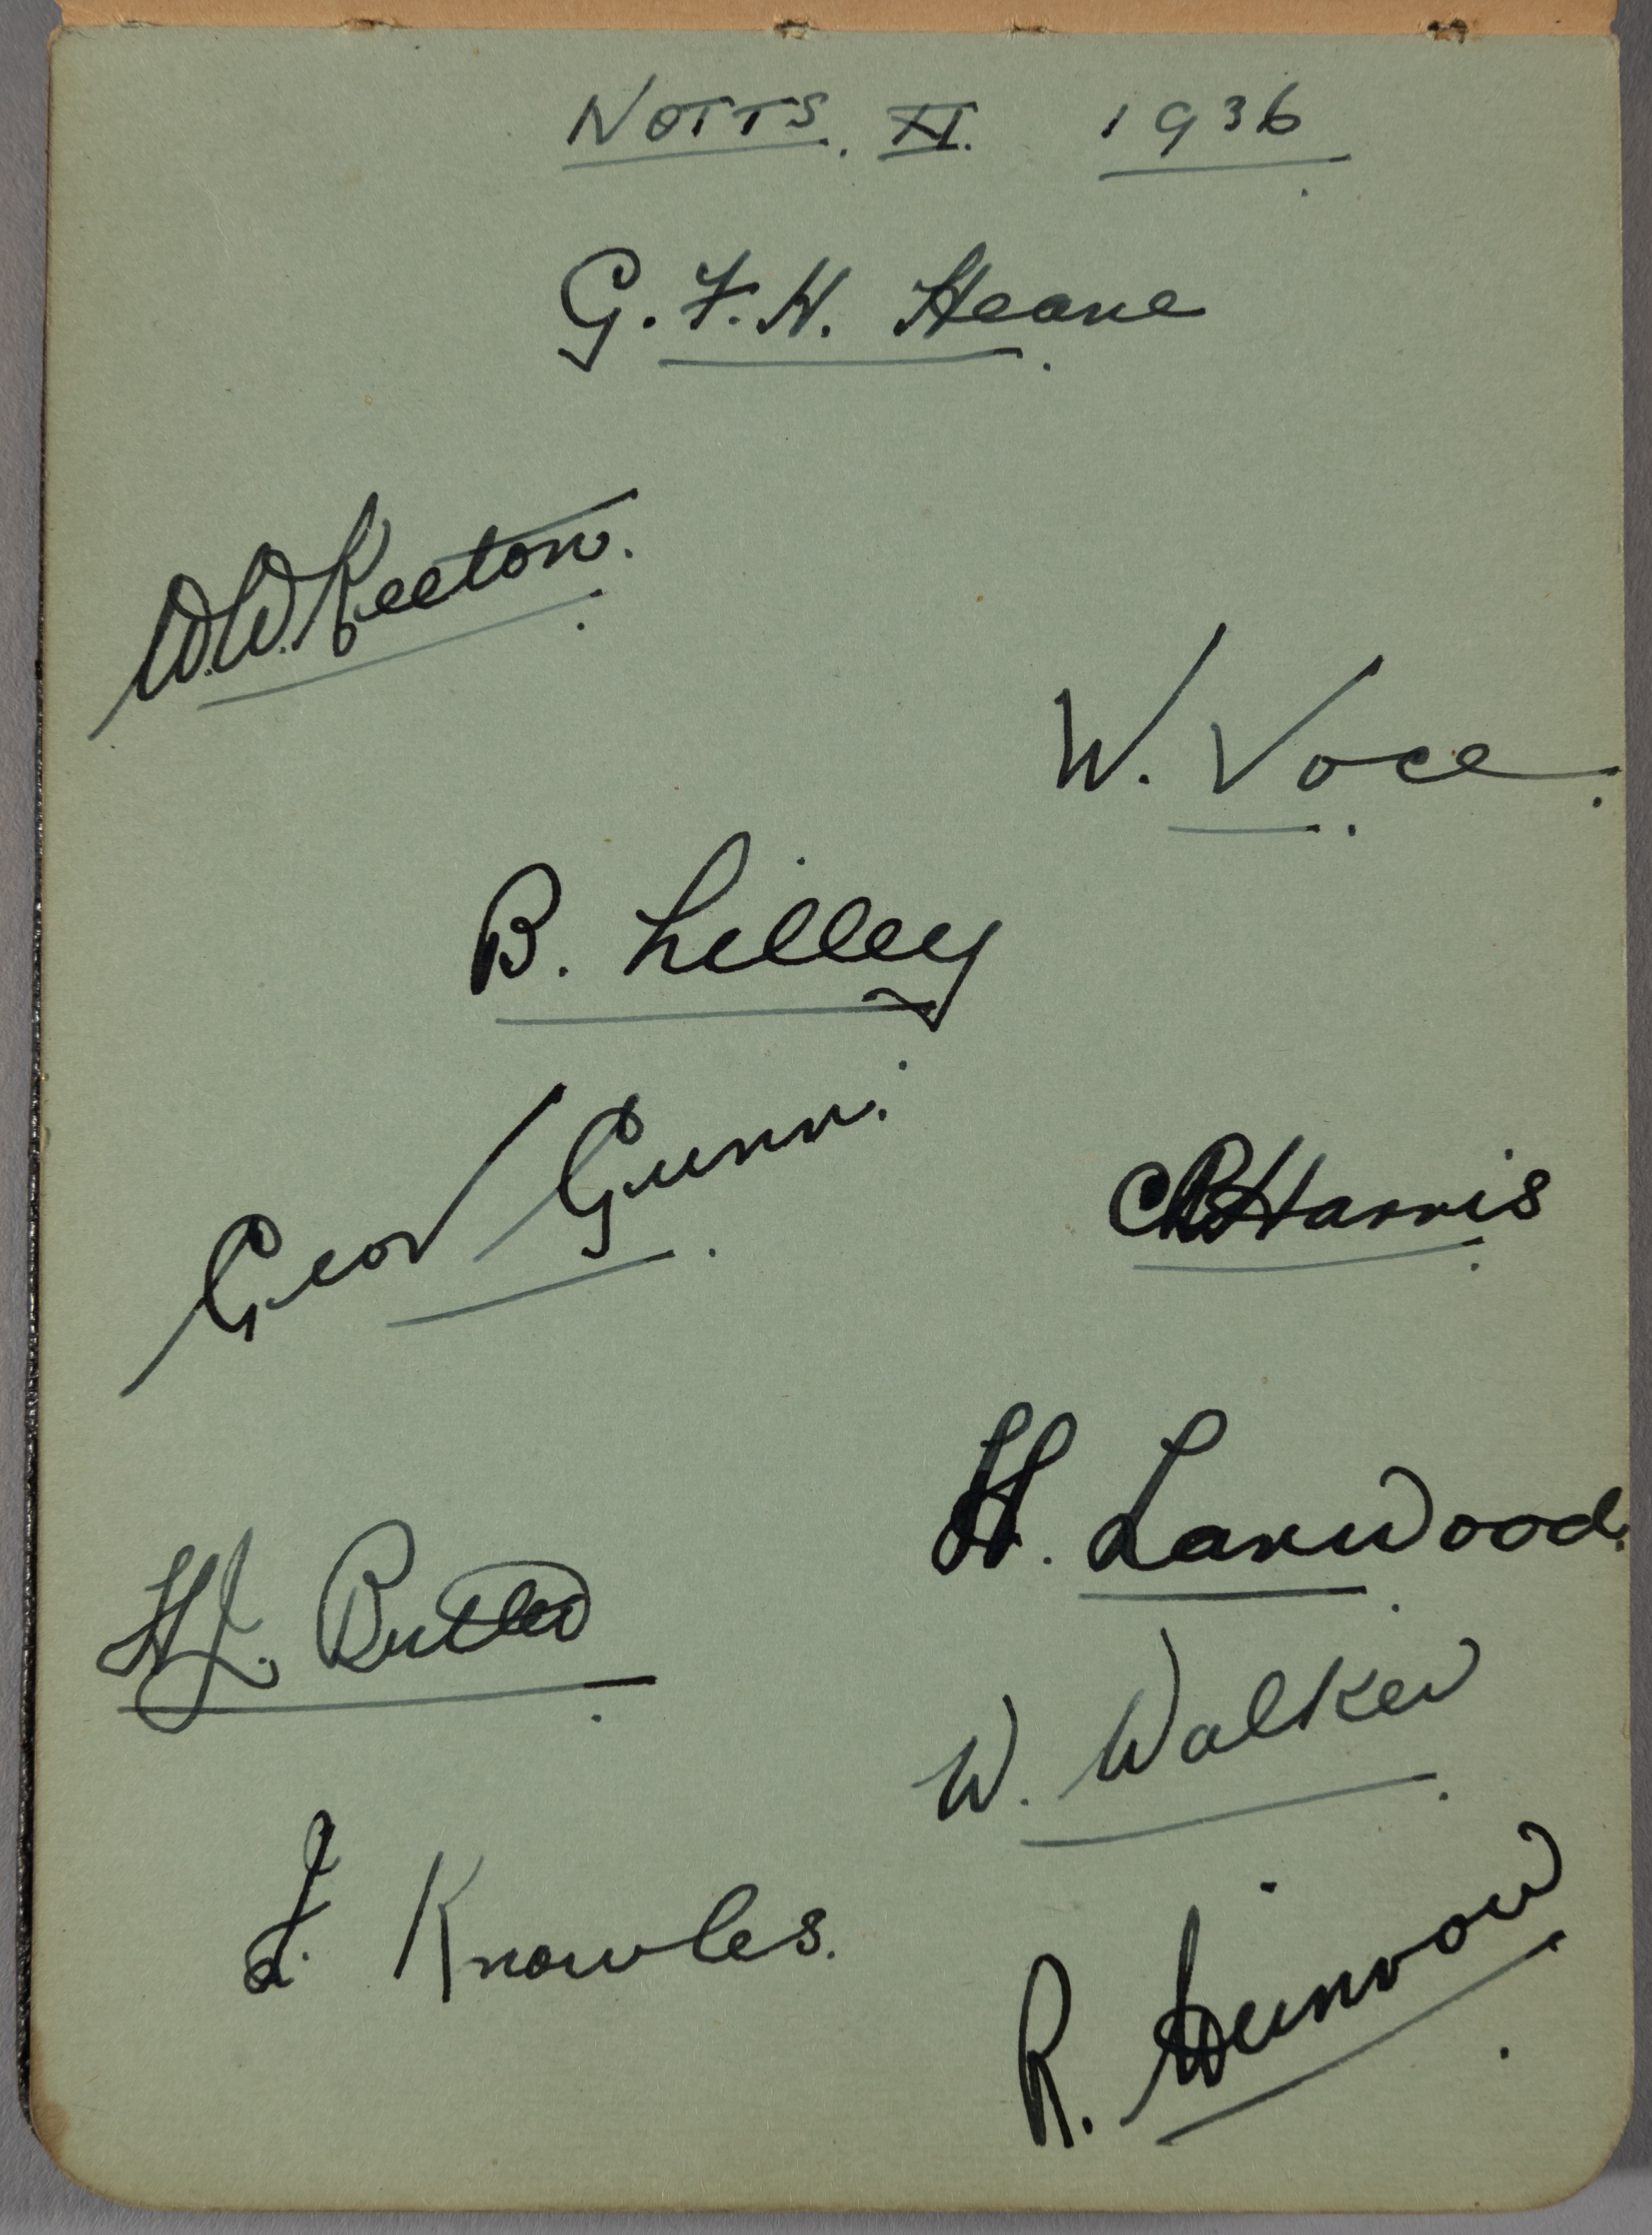 NOTTS. XI. 1936
G.F.H. Heane
W.W. Keeton.
W. Voce.
B. Lilley
Geo V Gunn.
C B Harris
H. Larwood.
H.J. Butler
W. Walker
J. Knowles.
R. Winrow